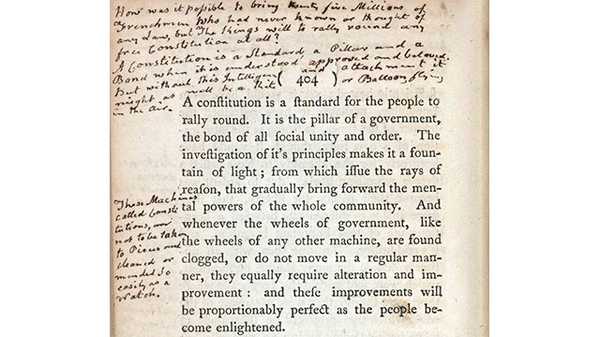 How was it possible to bring twenty five Millions of
Frenchmen who had never known or thought of
any Law, but The Kings will to rally round any
free Constitution at all?
A Constitution is a Standard a Pillar and a
Bond when it is understood approved and beloved.
But without this Intelligence and attachment it
might as well be a Kite or Balloon flying
in the Air.
( 404 )
A conſtitution is a ſtandard for the people to
rally round. It is the pillar of a government,
the bond of all ſocial unity and order. The
inveſtigation of it's principles makes it a foun-
tain of light; from which iſſue the rays of
reaſon, that gradually bring forward the men-
tal powers of the whole community. And
whenever the wheels of government, like
the wheels of any other machine, are found
clogged, or do not move in a regular man-
ner, they equally require alteration and im-
provement: and theſe improvements will
be proportionably perfect as the people be-
come enlightened.
These Machines
called Consti
tutions, are
not to be taken
to Pieces and
cleaned or
mended so
easily as a
Watch.